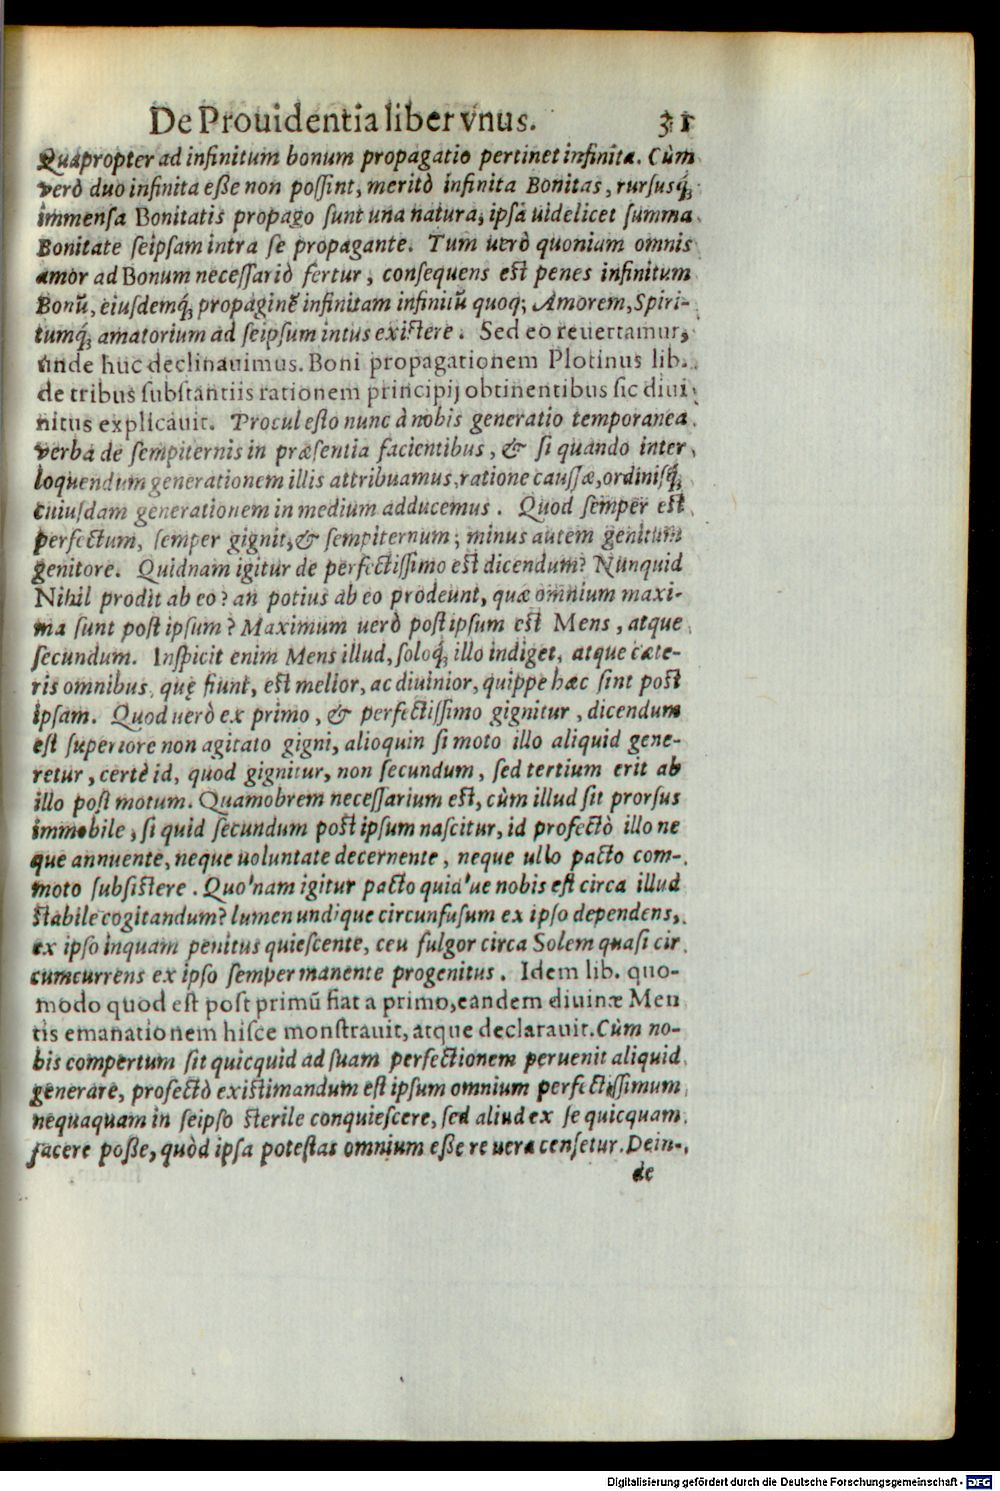 De Prouidentia liber vnus. 31
Quapropter ad infinitum bonum propagatio pertinet infinita. Cùm
verò duo infinita eße non poſſint, meritò infinita Bonitas, rurſusq́;
immenſa Bonitatis propago ſunt una natura, ipſa uidelicet ſumma
Bonitate ſeipſam intra ſe propagante. Tum uerò quoniam omnis
amor ad Bonum neceſſariò fertur, conſequens eſt penes infinitum
Bonũ, eiusdemq́; propaginẽ infinitam infinitũ quoq; Amorem, Spiri-
tumq́; amatorium ad ſeipſum intus exiſtere. Sed eo reuertamur,
unde huc declinauimus. Boni propagationem Plotinus lib.
de tribus ſubſtantiis rationem principij obtinentibus ſic diui
nitus explicauit. Procul eſto nunc à nobis generatio temporanea
verba de ſempiternis in præſentia facientibus, & ſi quando inter
loquendum generationem illis attribuamus, ratione cauſſæ, ordinisq́;
cuiuſdam generationem in medium adducemus. Quod ſemper eſt
perfectum, ſemper gignit, & ſempiternum; minus autem genitum
genitore. Quidnam igitur de perfectiſſimo eſt dicendum? Nunquid
Nihil prodit ab eo? an potius ab eo prodeunt, quæ omnium maxi-
ma ſunt poſt ipſum? Maximum uerò poſt ipſum eſt Mens, atque
ſecundum. Inſpicit enim Mens illud, ſoloq́; illo indiget, atque cæte-
ris omnibus, quę fiunt, eſt melior, ac diuinior, quippe hæc ſint poſt
ipſam. Quod uerò ex primo, & perfectiſſimo gignitur, dicendum
eſt ſuperiore non agitato gigni, alioquin ſi moto illo aliquid gene-
retur, certè id, quod gignitur, non ſecundum, ſed tertium erit ab
illo poſt motum. Quamobrem neceſſarium eſt, cùm illud ſit prorſus
immobile, ſi quid ſecundum poſt ipſum naſcitur, id profectò illo ne
que annuente, neque uoluntate decernente, neque ullo pacto com-
moto ſubſiſtere. Quo'nam igitur pacto quid'ue nobis eſt circa illud
ſtabile cogitandum? lumen undique circunfuſum ex ipſo dependens,
ex ipſo inquam penitus quieſcente, ceu fulgor circa Solem quaſi cir
cumcurrens ex ipſo ſemper manente progenitus. Idem lib. quo-
modo quod eſt poſt primũ fiat a primo, eandem diuinæ Men
tis emanationem hiſce monſtrauit, atque declarauit. Cùm no-
bis compertum ſit quicquid ad ſuam perfectionem peruenit aliquid
generare, profectò exiſtimandum eſt ipſum omnium perfectiſſimum
nequaquam in ſeipſo ſterile conquieſcere, ſed aliud ex ſe quicquam
facere poße, quòd ipſa poteſtas omnium eße re uera cenſetur. Dein-
de
Digitalisierung gefördert durch die Deutsche Forschungsgemeinschaft - DFG